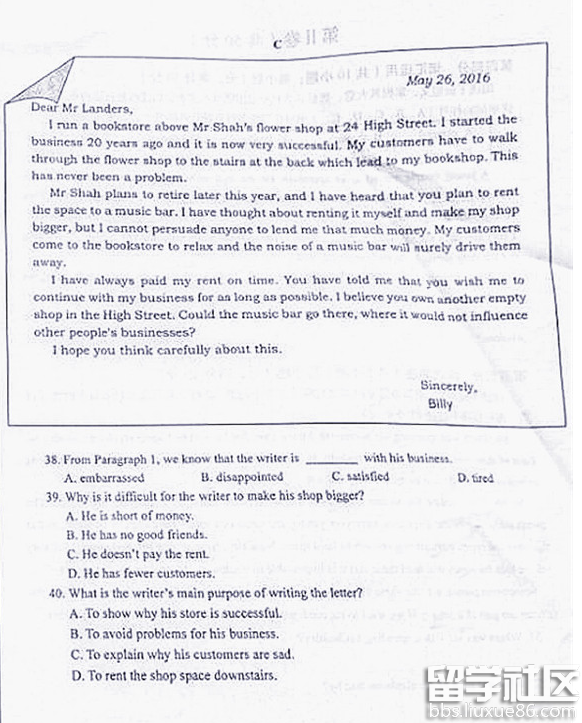 C
May 26, 2016
Dear Mr Landers,
I run a bookstore above Mr Shah's flower shop at 24 High Street. I started the
business 20 years ago and it is now very successful. My customers have to walk
through the flower shop to the stairs at the back which lead to my bookshop. This
has never been a problem.
Mr Shah plans to retire later this year, and I have heard that you plan to rent
the space to a music bar. I have thought about renting it myself and make my shop
bigger, but I cannot persuade anyone to lend me that much money. My customers
come to the bookstore to relax and the noise of a music bar will surely drive them
away.
I have always paid my rent on time. You have told me that you wish me to
continue with my business for as long as possible. I believe you own another empty
shop in the High Street. Could the music bar go there, where it would not influence
other people's businesses?
I hope you think carefully about this.
Sincerely,
Billy
38. From Paragraph 1, we know that the writer is ________ with his business.
A. embarrassed B. disappointed C. satisfied D. tired
39. Why is it difficult for the writer to make his shop bigger?
A. He is short of money.
B. He has no good friends.
C. He doesn't pay the rent.
D. He has fewer customers.
40. What is the writer's main purpose of writing the letter?
A. To show why his store is successful.
B. To avoid problems for his business.
C. To explain why his customers are sad.
D. To rent the shop space downstairs.
留学社区
bbs.liuxue86.com